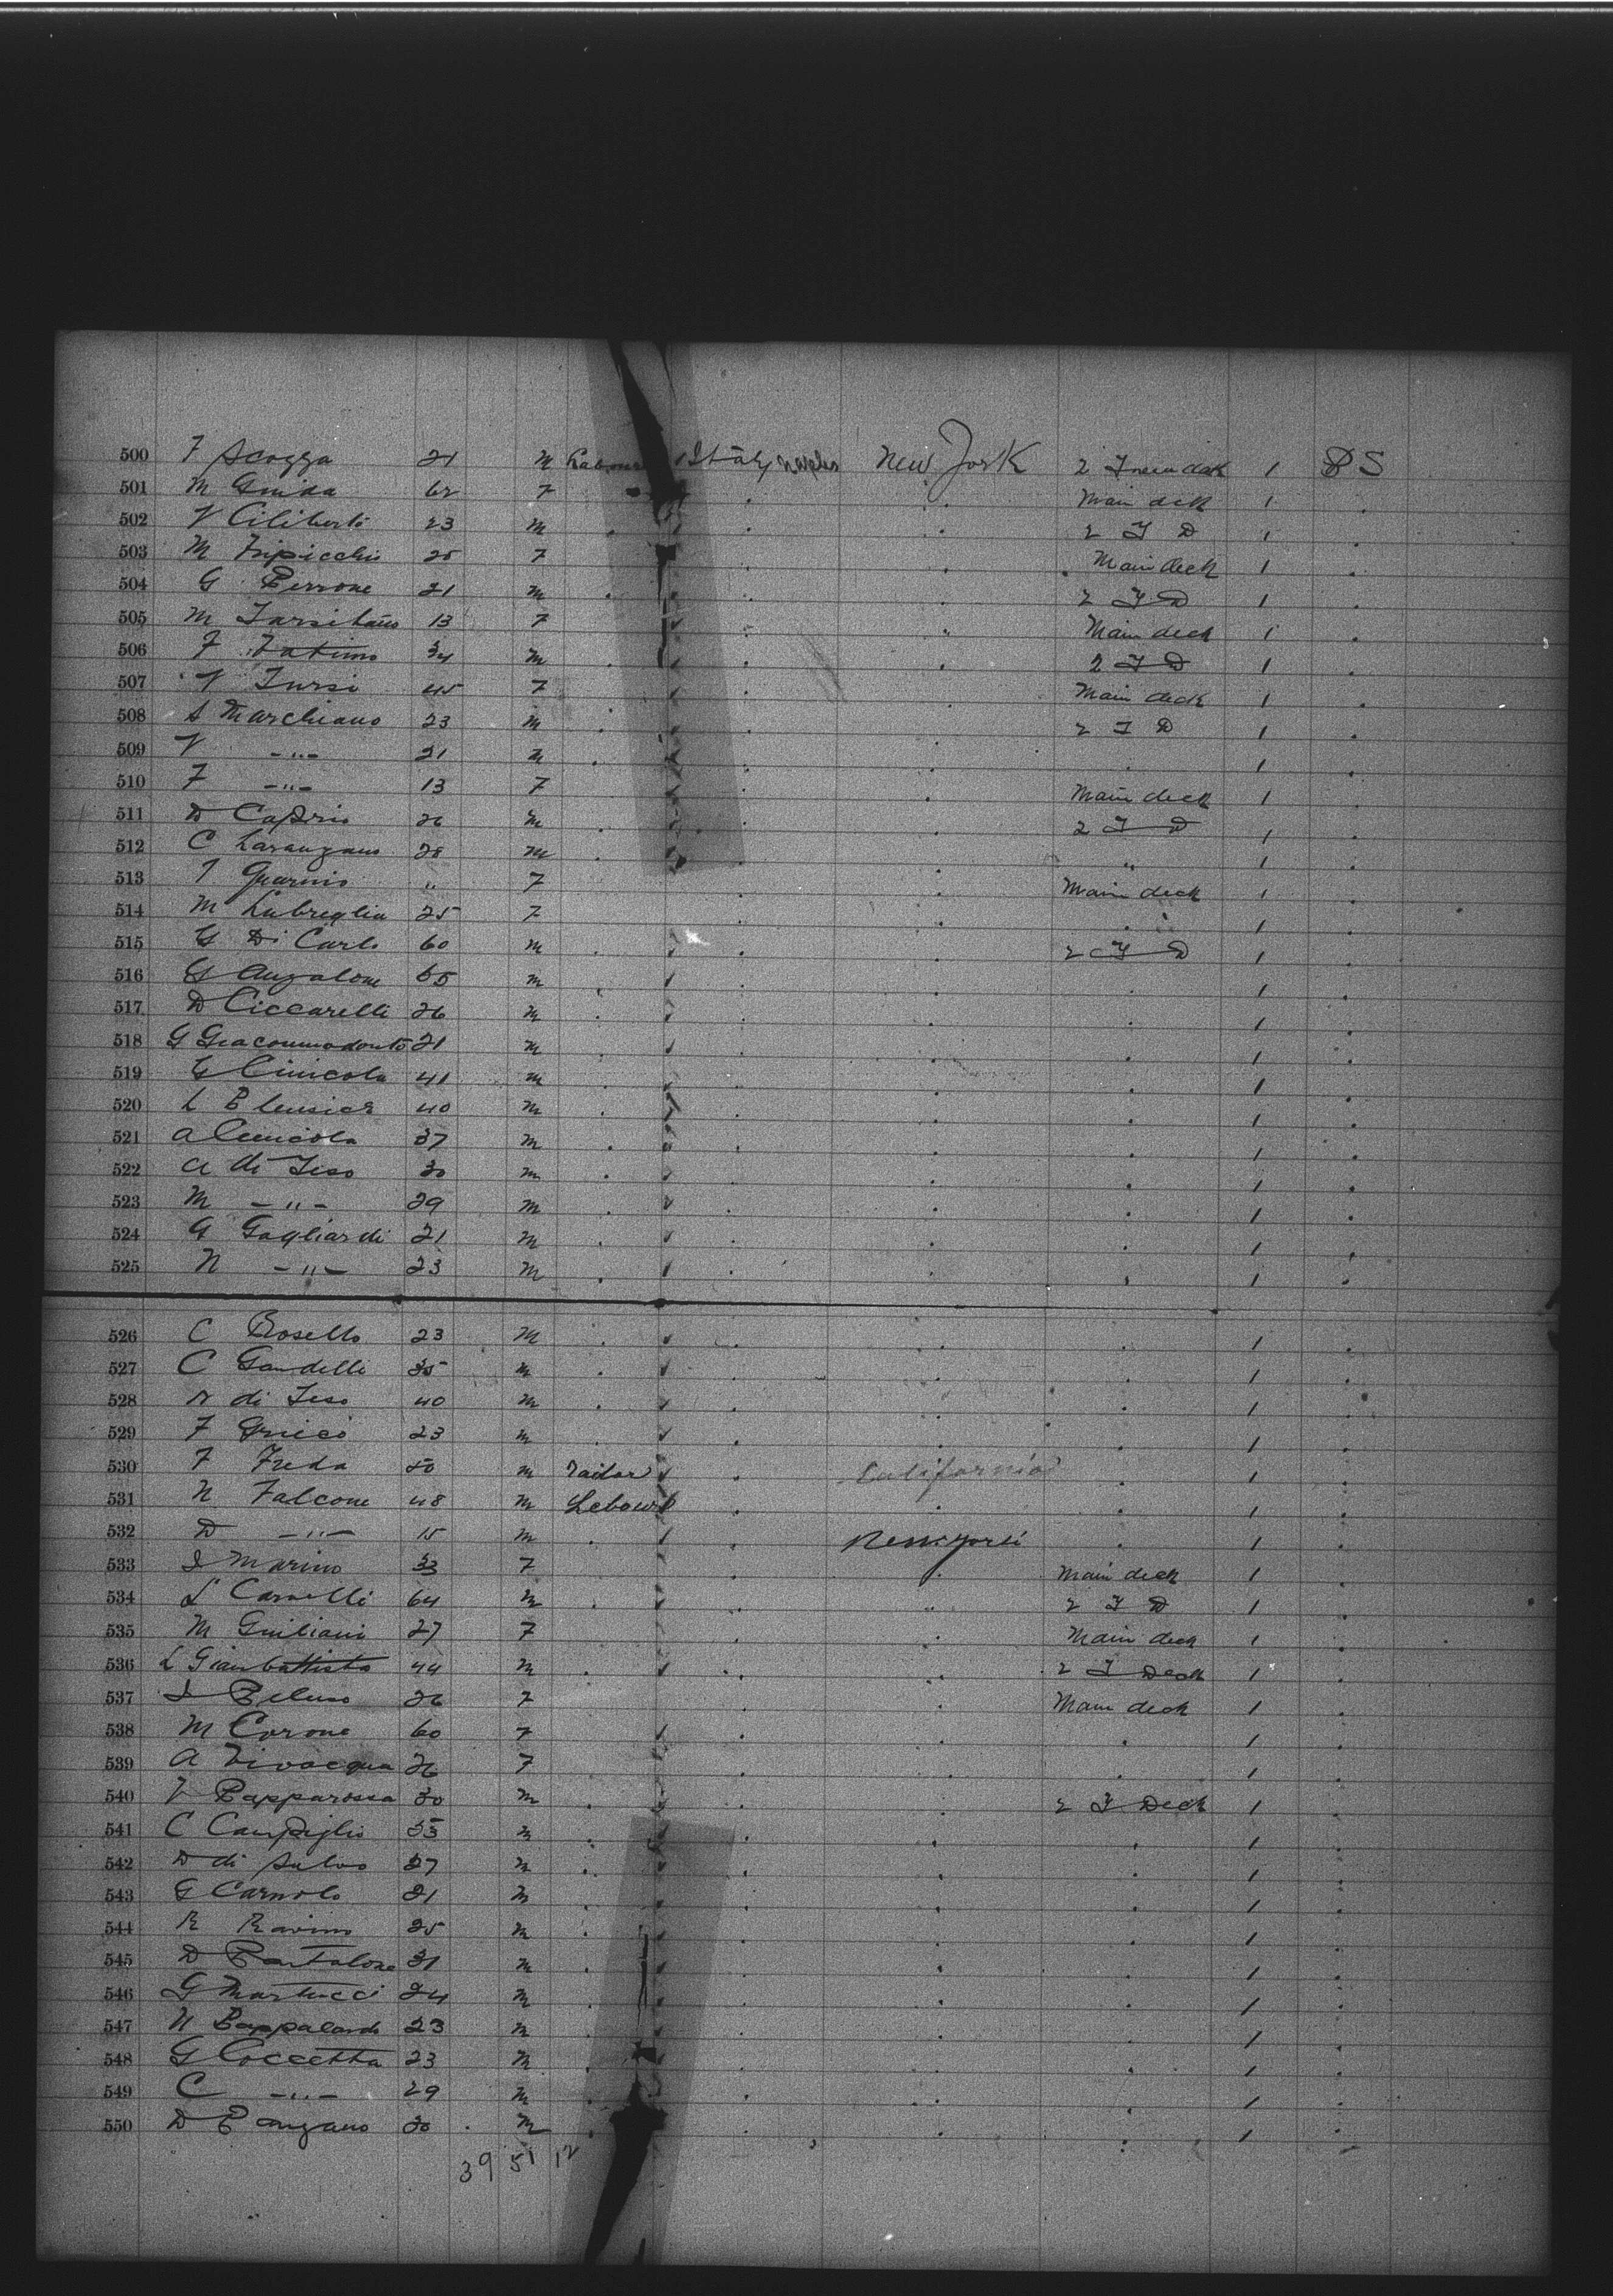 500 F Scozza 21 M Labourer Italy Naples New York 2 Tween deck 1 P S
501 M Guida 62 F Main deck 1
502 V Ciliberti 23 M 2 T D 1
503 M Tripicchio 25 F Main deck 1
504 G Perrone 21 M 2 T D 1
505 M Tarsitano 13 F Main deck 1
506 F 34 M 2 T D 1
507 V Tursi 45 F Main deck 1
508 S Marchiano 23 M 2 T D 1
509 V -"- 21 M 1
510 F -"- 13 F Main deck 1
511 D Caprio 26 M 2 T D 1
512 C 28 M " 1
513 Guarnis " F Main deck 1
514 M Labreglia 25 F 1
515 G Di Carlo 60 M 2 T D 1
516 G Angalone 55 M 1
517 D Ciccarelli 26 M 1
518 G Giacommodonto 21 M 1
519 G Cinicola 41 M 1
520 L 40 M 1
521 A Cinicola 37 M 1
522 A di Teso 30 M 1
523 M -"- 29 M 1
524 G Gagliardi 21 M 1
525 N -"- 23 M 1
526 C Rosello 23 M 1
527 C Gandelli 35 M 1
528 N di Teso 40 M 1
529 F Grieco 23 M 1
530 F Freda 50 M Tailor California 1
531 N Falcone 48 M Labour 1
532 D -"- 15 M New York 1
533 I Marino 33 F Main deck 1
534 L Carnelli 64 M " 2 T D 1
535 M Giuliani 27 F Main deck 1
536 L Gianbattista 44 M 2 T Deck 1
537 I Peluso 26 F Main deck 1
538 M Corone 60 F 1
539 A Vivacqua 26 F 1
540 V Papparossa 30 M 2 T Deck 1
541 C Campiglio 33 M 1
542 D di Salvo 27 M 1
543 G Carnolo 21 M 1
544 R Ravino 25 M 1
545 D Pantalone 31 M 1
546 G Martucci 24 M 1
547 N Pappalardo 23 M 1
548 G Coccetta 23 M 1
549 C -"- 29 M 1
550 D Panzano 30 M 1
39 51 12